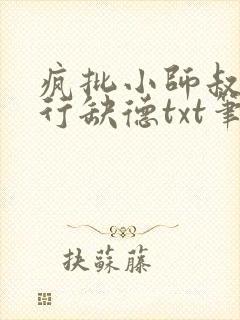 疯批小師叔
行缺德txt筆
抉蘇藤